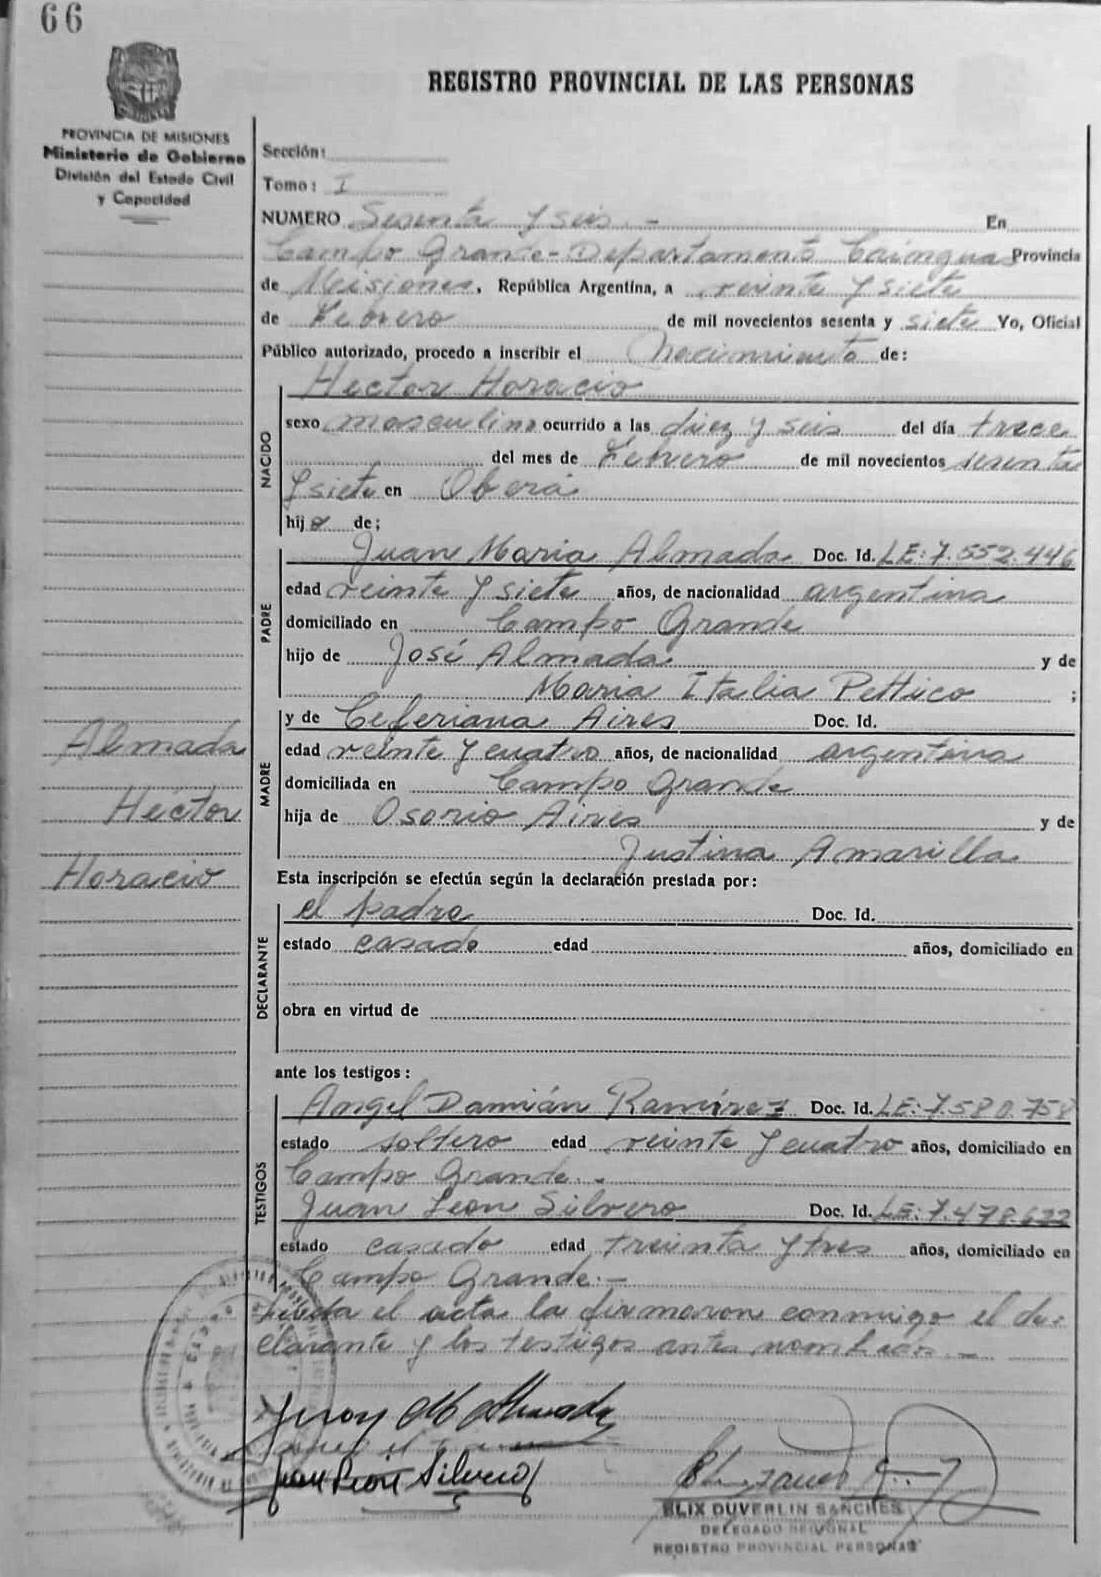 66
REGISTRO PROVINCIAL DE LAS PERSONAS
PROVINCIA DE MISIONES
Ministerio de Gobierno
División del Estado Civil
y Capacidad
Sección:
Tomo: I
NUMERO Sesenta y seis.- En
Campo Grande - Departamento Cainguas Provincia
de Misiones. República Argentina, a veinte y siete
de Febrero de mil novecientos sesenta y siete Yo, Oficial
Público autorizado, procedo a inscribir el Nacimiento de:
NACIDO
Hector Horacio
sexo masculino ocurrido a las diez y seis del día trece
del mes de Febrero de mil novecientos sesenta
y siete en Oberá
hijo de;
PADRE
Juan Maria Almada Doc. Id. LE: 7.552.446
edad veinte y siete años, de nacionalidad argentina
domiciliado en Campo Grande
hijo de José Almada y de
Maria Italia Pettico ;
MADRE
y de Ceferiana Aires Doc. Id.
edad veinte y cuatro años, de nacionalidad argentina
domiciliada en Campo Grande
hija de Osorio Aires y de
Justina Amarilla
Almada
Héctor
Horacio
Esta inscripción se efectúa según la declaración prestada por:
DECLARANTE
el padre Doc. Id.
estado casado edad años, domiciliado en
obra en virtud de
ante los testigos:
TESTIGOS
Angel Damián Ramírez Doc. Id. LE: 7.580.758
estado soltero edad veinte y cuatro años, domiciliado en
Campo Grande.
Juan Leon Silvero Doc. Id. LE: 7.478.632
estado casado edad treinta y tres años, domiciliado en
Campo Grande.-
Leida el acta la firmaron conmigo el de-
clarante y los testigos antes nombrados.-
Juan M Almada
Juan León Silvero
ELIX DUVERLIN SANCHES
DELEGADO REGIONAL
REGISTRO PROVINCIAL PERSONAS